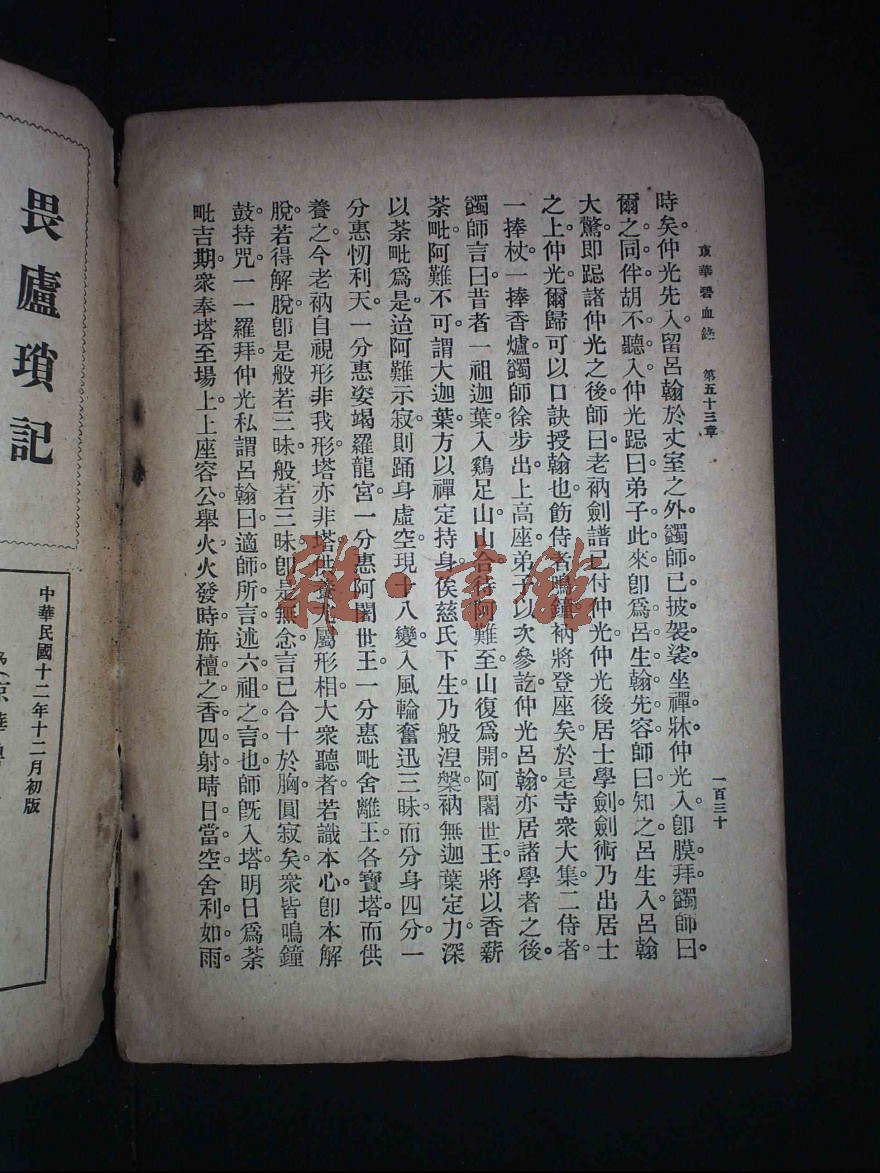 京華碧血錄　第五十三章　一百三十
時矣。仲光先入。留呂翰於丈室之外。鐲師已披袈裟。坐禪牀。仲光入。卽膜拜。鐲師曰。
爾之同伴。胡不聽入。仲光跽曰。弟子此來。卽爲呂生翰先容。師曰。知之。呂生入。呂翰
大驚。卽跽諸仲光之後。師曰。老衲劍譜已付仲光。仲光後居士學劍。劍術乃出居士
之上。仲光爾歸。可以口訣授翰也。飭侍者鳴鐘。衲將登座矣。於是寺衆大集。二侍者
一捧杖。一捧香爐。鐲師徐步出。上高座。弟子以次參訖。仲光呂翰。亦居諸學者之後。
鐲師言曰。昔者一祖迦葉入鷄足山。山合。待阿難至。山復爲開。阿闍世王將以香薪
荼毗。阿難不可。謂大迦葉方以禪定持身。俟慈氏下生。乃般湼槃。衲無迦葉定力。深
以荼毗爲是。迨阿難示寂。則踊身虛空。現十八變。入風輪奮迅三昧。而分身四分。一
分惠忉利天。一分惠娑竭羅龍宮。一分惠阿闍世王。一分惠毗舍離王。各寶塔而供
養之。今老衲自視。形非我形。塔亦非塔。供養尤屬形相。大衆聽者。若識本心。卽本解
脫。若得解脫。卽是般若三昧。般若三昧。卽是無念。言已。合十於胸。圓寂矣。衆皆鳴鐘
鼓。持咒。一一羅拜。仲光私謂呂翰曰。適師所言。述六祖之言也。師旣入塔。明日爲荼
毗吉期。衆奉塔至場上。上座容公舉火。火發時。旃檀之香四射。晴日當空。舍利如雨。
畏廬瑣記
中華民國十二年十二月初版
雜·書館